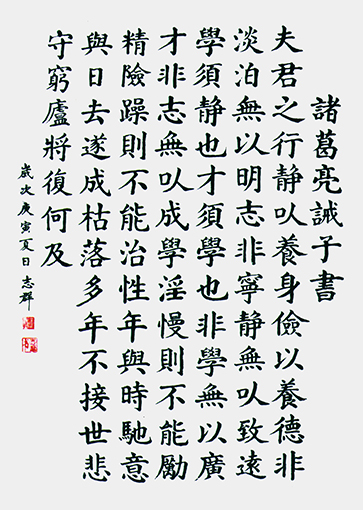 諸葛亮誡子書
夫君之行静以養身儉以養德非
淡泊無以明志非寧静無以致遠
學須静也才須學也非學無以廣
才非志無以成學淫慢則不能勵
精險躁則不能治性年與時馳意
與日去遂成枯落多年不接世悲
守窮廬將復何及
歲次庚寅夏日志群